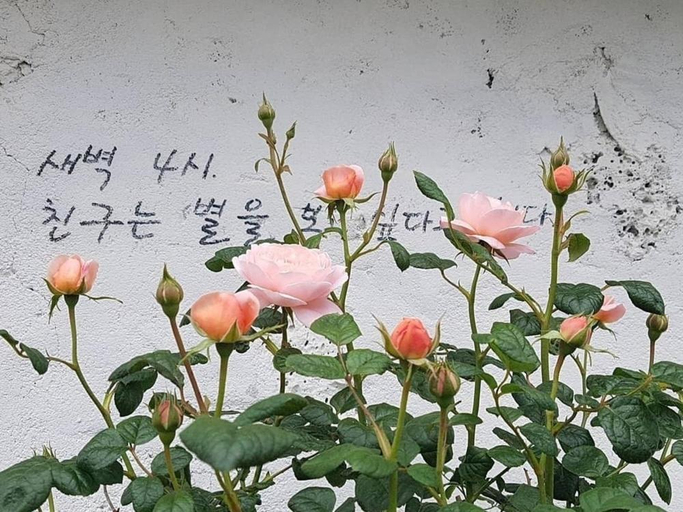 새벽 4시.
친구는 별을 싶다